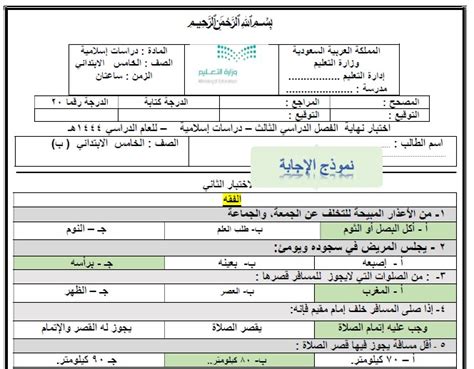 بسم الله الرحمن الرحيم
المملكة العربية السعودية
وزارة التعليم
إدارة التعليم .................
مدرسة : ..................
وزارة التعليم
Ministry of Education
المادة : دراسات إسلامية
الصف : الخامس الابتدائي
الزمن : ساعتان
المصحح : المراجع : الدرجة كتابة الدرجة رقما ٢٠
التوقيع : التوقيع :
اختبار نهاية الفصل الدراسي الثالث – دراسات إسلامية – للعام الدراسي ١٤٤٤هـ
اسم الطالب : الصف : الخامس الابتدائي ( ب )
نموذج الإجابة
الاختبار الثاني
الفقه
١- من الأعذار المبيحة للتخلف عن الجمعة، والجماعة
أ - أكل البصل أو الثوم ب- طلب العلم جـ - النوم
٢ - يجلس المريض في سجوده ويومئ:
أ - إصبعه ب- بعينه جـ- برأسه
٣- : من الصلوات التي لايجوز للمسافر قصرها :
أ - المغرب ب - العصر جـ - الظهر
٤- إذا صلى المسافر خلف إمام مقيم فإنه:
وجب عليه إتمام الصلاة يقصر الصلاة يجوز له القصر والإتمام
٥ - أقل مسافة يجوز فيها قصر الصلاة:
أ – ٧٠ كيلومتر. ب- ٨٠ كيلومتر. جـ ٩٠ كيلومتر.